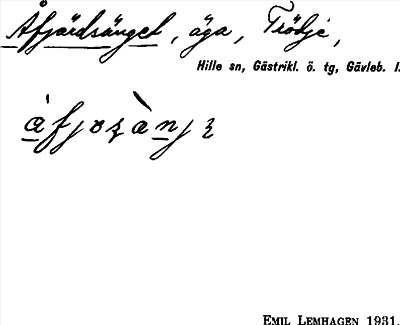 Åfjärdsänget, äga, Trödje,
Hille sn, Gästrikl. ö. tg, Gävleb. l.
EMIL LEMHAGEN 1931.